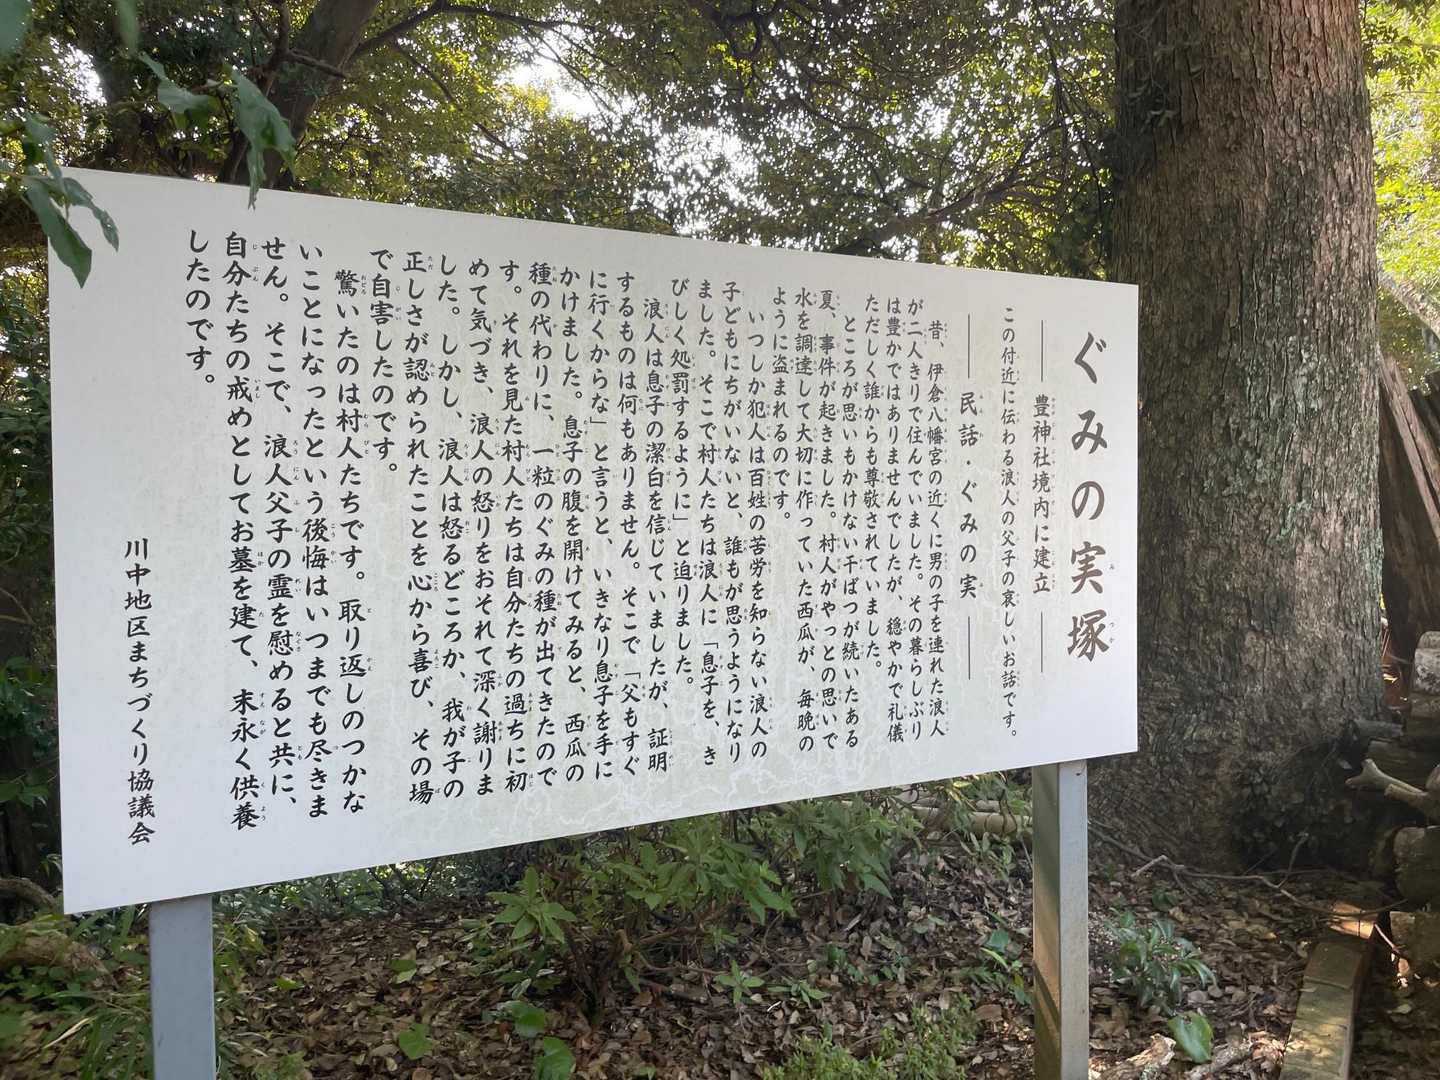 ぐみの実塚
―― 豊神社境内に建立 ――
この付近に伝わる浪人の父子の哀しいお話です。
―― 民話・ぐみの実 ――
昔、伊倉八幡宮の近くに男の子を連れた浪人
が二人きりで住んでいました。その暮らしぶり
は豊かではありませんでしたが、穏やかで礼儀
ただしく誰からも尊敬されていました。
ところが思いもかけない干ばつが続いたある
夏、事件が起きました。村人がやっとの思いで
水を調達して大切に作っていた西瓜が、毎晩の
ように盗まれるのです。
いつしか犯人は百姓の苦労を知らない浪人の
子どもにちがいないと、誰もが思うようになり
ました。そこで村人たちは浪人に「息子を、き
びしく処罰するように」と迫りました。
浪人は息子の潔白を信じていましたが、証明
するものは何もありません。そこで「父もすぐ
に行くからな」と言うと、いきなり息子を手に
かけました。息子の腹を開けてみると、西瓜の
種の代わりに、一粒のぐみの種が出てきたので
す。それを見た村人たちは自分たちの過ちに初
めて気づき、浪人の怒りをおそれて深く謝りま
した。しかし、浪人は怒るどころか、我が子の
正しさが認められたことを心から喜び、その場
で自害したのです。
驚いたのは村人たちです。取り返しのつかな
いことになったという後悔はいつまでも尽きま
せん。そこで、浪人父子の霊を慰めると共に、
自分たちの戒めとしてお墓を建て、末永く供養
したのです。
川中地区まちづくり協議会